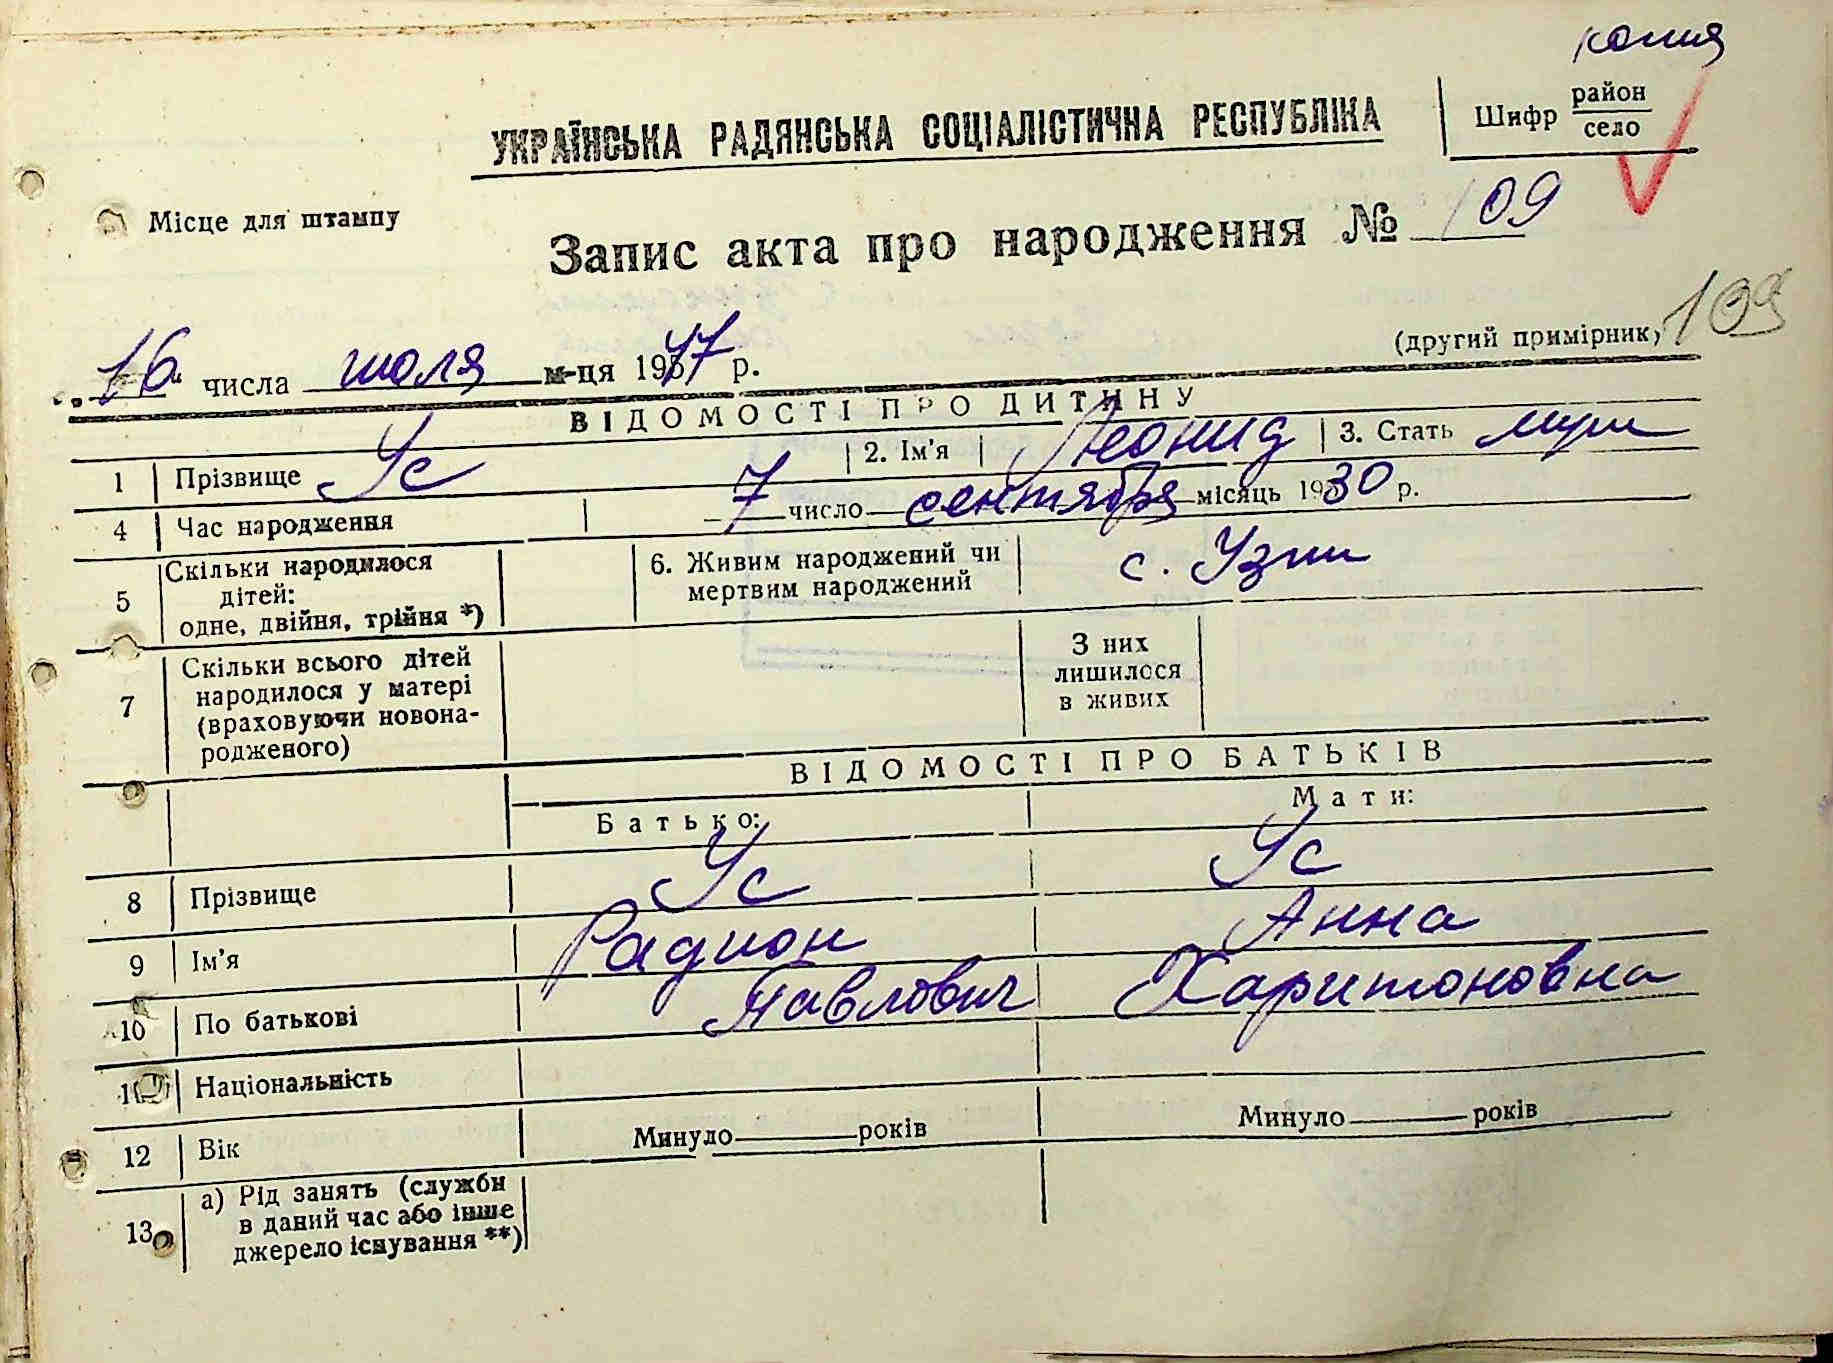 копия
УКРАЇНСЬКА РАДЯНСЬКА СОЦІАЛІСТИЧНА РЕСПУБЛІКА
Шифр район
село
Місце для штампу
Запис акта про народження № 109
(другий примірник) 109
„16" числа июля м-ця 1947 р.
ВІДОМОСТІ ПРО ДИТИНУ
1 Прізвище Ус 2. Ім'я Леонид 3. Стать муж
4 Час народження 7 число сентября місяць 1930 р.
5 Скільки народилося дітей: одне, двійня, трійня *) 6. Живим народжений чи мертвим народжений с. Узин
7 Скільки всього дітей народилося у матері (враховуючи новонародженого) З них лишилося в живих
ВІДОМОСТІ ПРО БАТЬКІВ
Батько: Мати:
8 Прізвище Ус Ус
9 Ім'я Радион Анна
10 По батькові Павлович Харитоновна
11 Національність
12 Вік Минуло років Минуло років
13 а) Рід занять (служби в даний час або інше джерело існування **)